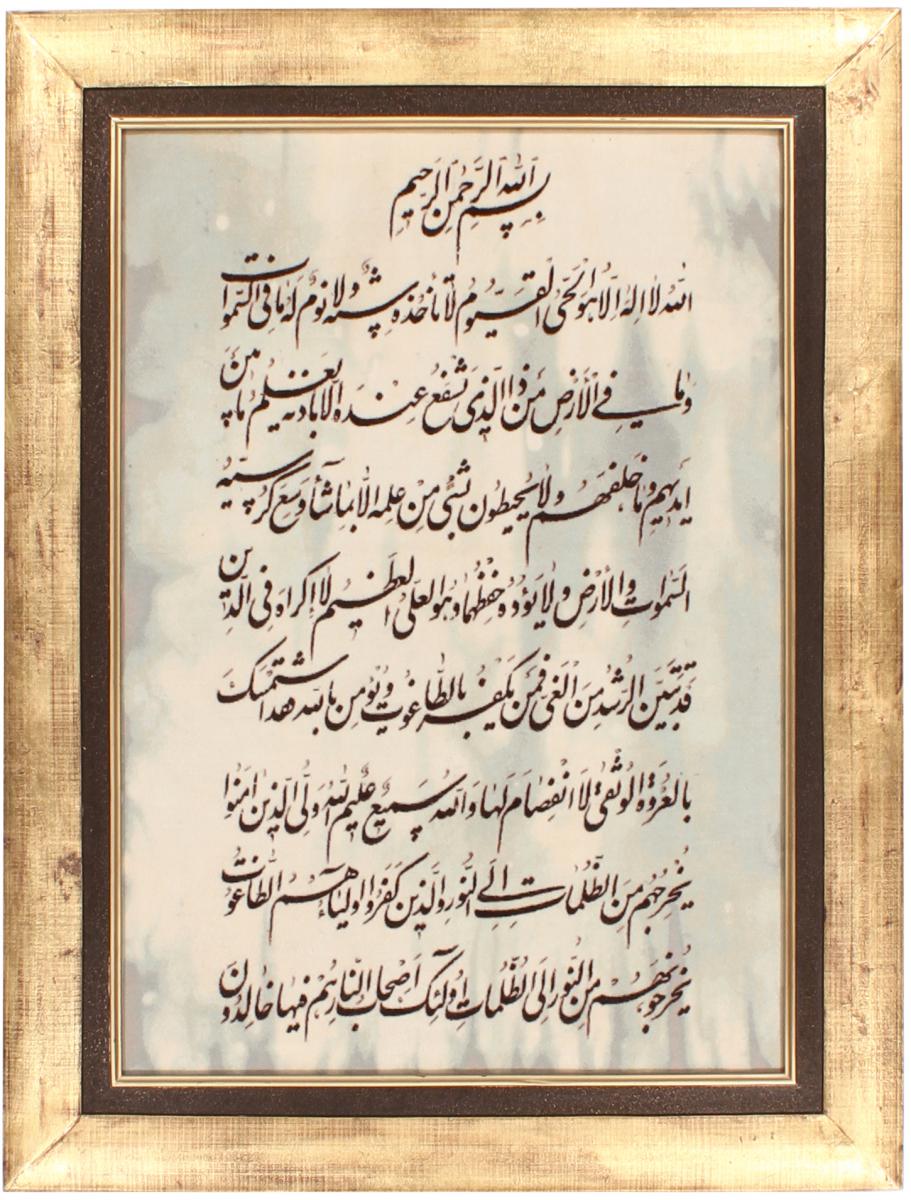 بِسْمِ اللهِ الرَّحْمٰنِ الرَّحِيمِ
اَللهُ لَا اِلٰهَ اِلَّا هُوَ الْحَیُّ الْقَیُّومُ لَا تَأْخُذُهُ سِنَةٌ وَلَا نَوْمٌ لَهُ مَا فِی السَّمٰوَاتِ
وَمَا فِی الْأَرْضِ مَنْ ذَا الَّذِی یَشْفَعُ عِنْدَهُ اِلَّا بِاِذْنِهِ یَعْلَمُ مَا بَیْنَ
اَیْدِیهِمْ وَمَا خَلْفَهُمْ وَلَا یُحِیطُونَ بِشَیْءٍ مِنْ عِلْمِهِ اِلَّا بِمَا شَآءَ وَسِعَ كُرْسِیُّهُ
السَّمٰوَاتِ وَالْأَرْضَ وَلَا یَؤُدُهُ حِفْظُهُمَا وَهُوَ الْعَلِیُّ الْعَظِیمُ لَا اِكْرَاهَ فِی الدِّینِ
قَدْ تَبَیَّنَ الرُّشْدُ مِنَ الْغَیِّ فَمَنْ یَكْفُرْ بِالطَّاغُوتِ وَیُؤْمِنْ بِاللهِ فَقَدِ اسْتَمْسَكَ
بِالْعُرْوَةِ الْوُثْقٰی لَا انْفِصَامَ لَهَا وَاَللهُ سَمِیعٌ عَلِیمٌ اَللهُ وَلِیُّ الَّذِینَ اٰمَنُوا
یُخْرِجُهُمْ مِنَ الظُّلُمَاتِ اِلَی النُّورِ وَالَّذِینَ كَفَرُوا اَوْلِیَآءُهُمُ الطَّاغُوتُ
یُخْرِجُونَهُمْ مِنَ النُّورِ اِلَی الظُّلُمَاتِ اُولٰئِكَ اَصْحَابُ النَّارِ هُمْ فِیهَا خَالِدُونَ